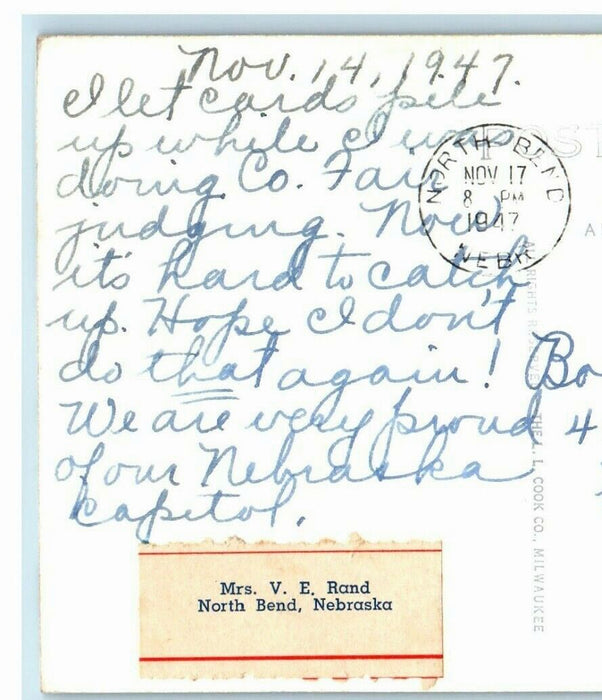 Nov. 14, 1947.
I let cards pile
up while I was
doing Co. Fair
judging. Now
it's hard to catch
up. Hope I don't
do that again!
We are very proud
of our Nebraska
Capitol.
NORTH BEND
NOV 17
8 PM
1947
NEBR
POST
A
Bo
4
ALL RIGHTS RESERVED
THE L. L. COOK CO., MILWAUKEE
Mrs. V. E. Rand
North Bend, Nebraska